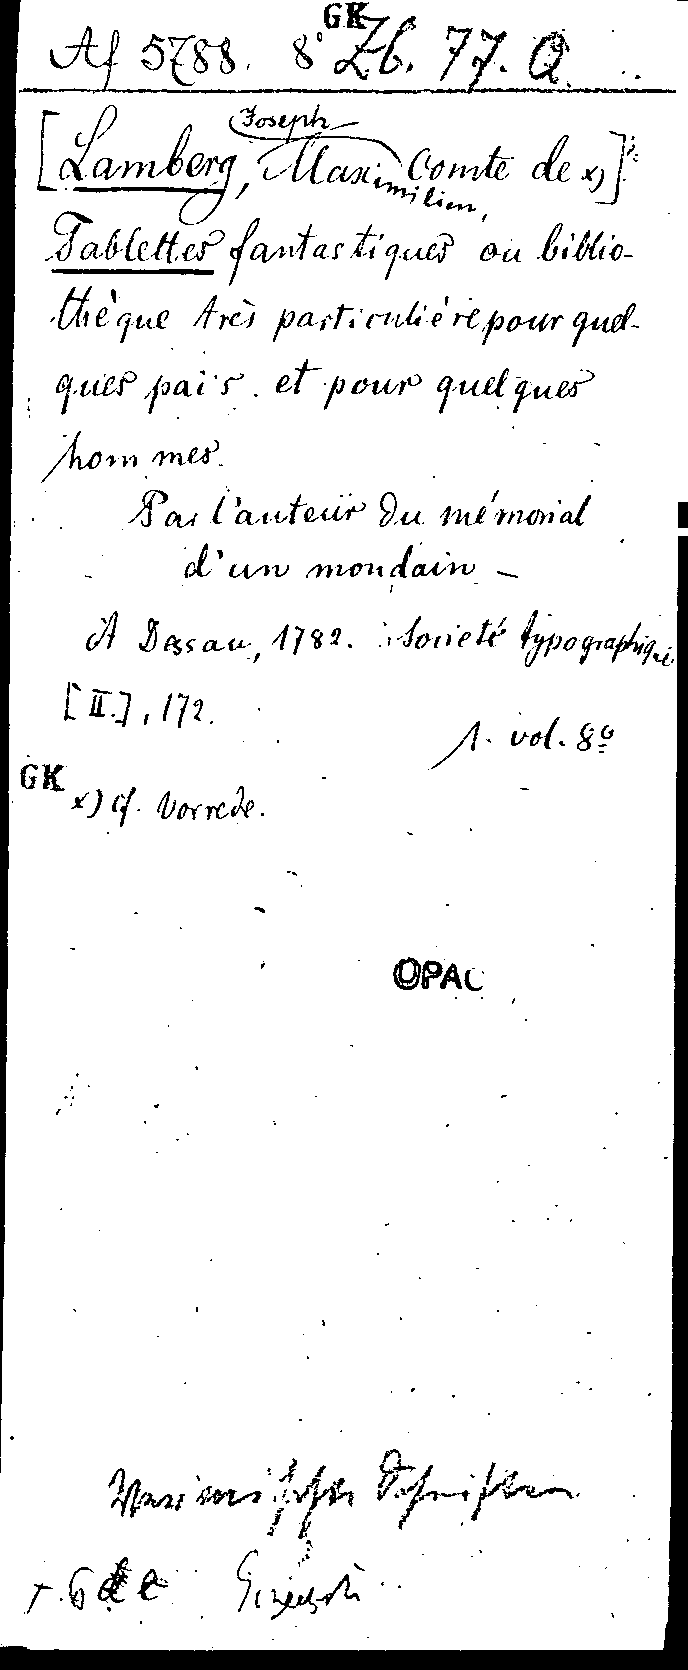 GK
Af 5788. 8° Zb. 77. Q.
Joseph
[Lamberg, Maximilien, Comte de x)]
Tablettes fantastiques ou biblio-
thèque très particuliére pour quel-
ques païs et pour quelques
hommes.
Par l'auteur du mémorial
d'un mondain —
A Dessau, 1782. Societé typographique
[II.], 172.
1. vol. 8°
GK
x) cf. Vorrede.
OPAC
Vermischte Schriften